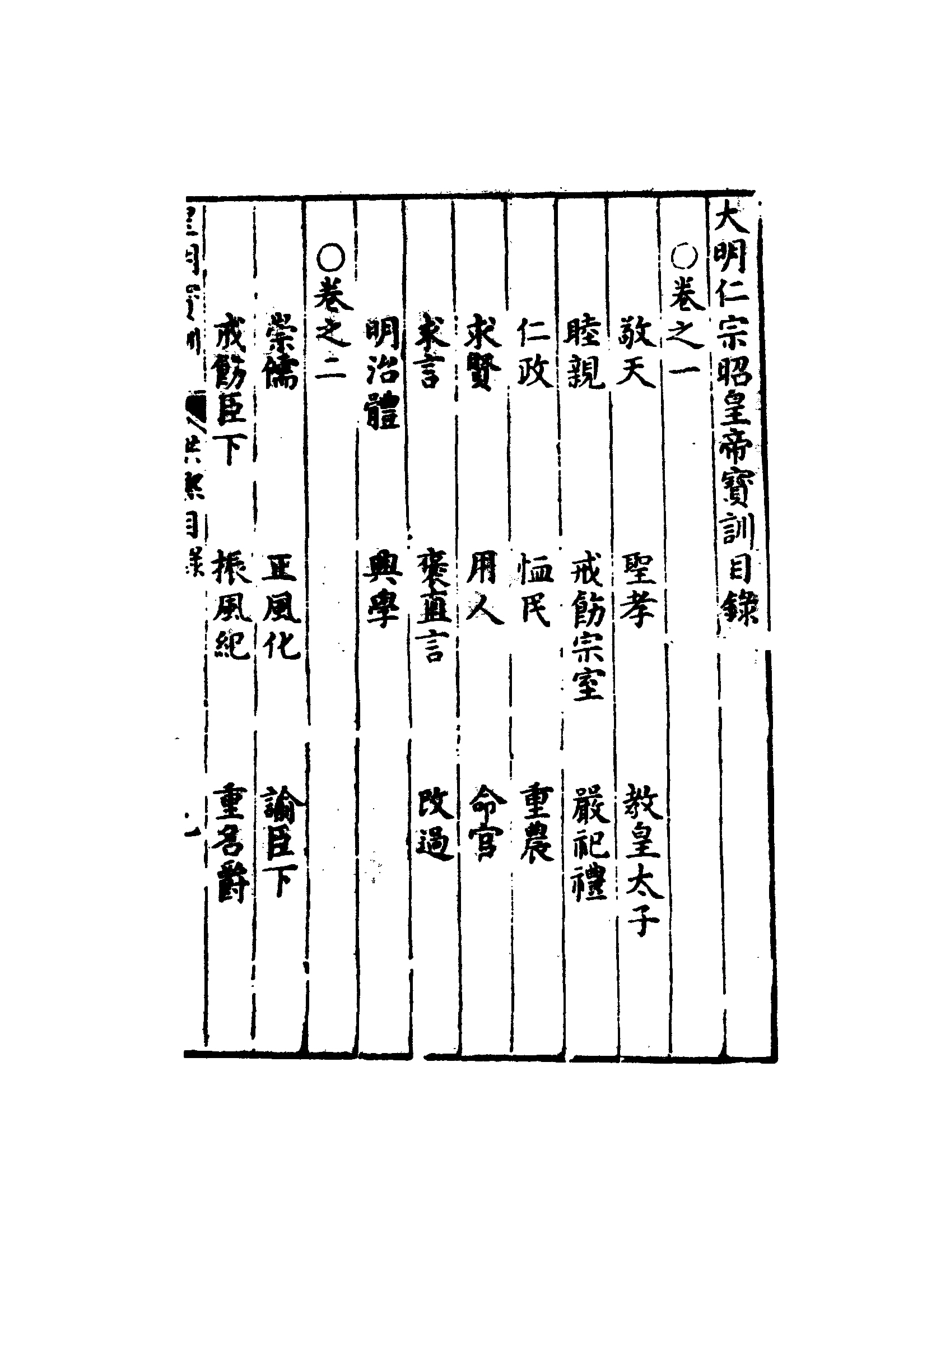 大明仁宗昭皇帝寶訓目錄
○卷之一
敬天 聖孝 教皇太子
睦親 戒飭宗室 嚴祀禮
仁政 恤民 重農
求賢 用人 命官
求言 褒直言 改過
明治體 興學
○卷之二
崇儒 正風化 諭臣下
戒飭臣下 振風紀 重名爵